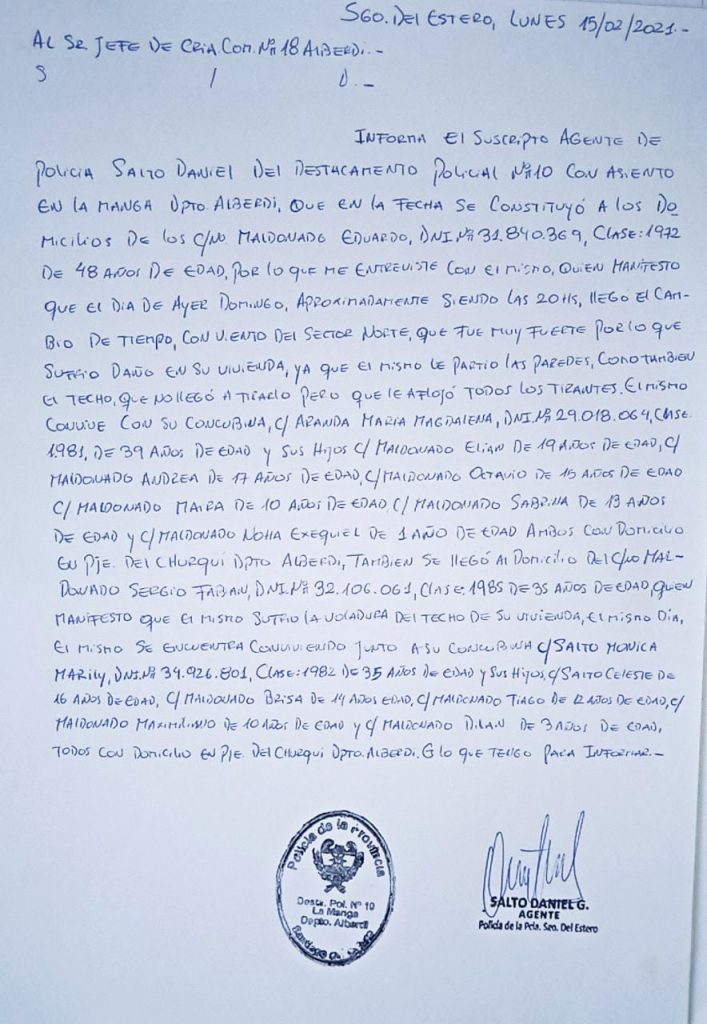 SGO. DEL ESTERO, LUNES 15/02/2021.-
AL SR JEFE DE CRIA COM. Nº 18 ALBERDI.-
S / D.-
INFORMA EL SUSCRIPTO AGENTE DE
POLICIA SALTO DANIEL DEL DESTACAMENTO POLICIAL Nº10 CON ASIENTO
EN LA MANGA DPTO. ALBERDI, QUE EN LA FECHA SE CONSTITUYÓ A LOS DO
MICILIOS DE LOS C/NO. MALDONADO EDUARDO, DNI.Nº 31.840.369, CLASE:1972
DE 48 AÑOS DE EDAD, POR LO QUE ME ENTREVISTE CON EL MISMO, QUIEN MANIFESTO
QUE EL DIA DE AYER DOMINGO, APROXIMADAMENTE SIENDO LAS 20HS, LLEGO EL CAM-
BIO DE TIEMPO, CON VIENTO DEL SECTOR NORTE, QUE FUE MUY FUERTE POR LO QUE
SUFRIO DAÑO EN SU VIVIENDA, YA QUE EL MISMO LE PARTIO LAS PAREDES, COMO TAMBIEN
EL TECHO, QUE NO LLEGÓ A TIRARLO PERO QUE LE AFLOJÓ TODOS LOS TIRANTES. EL MISMO
CONVIVE CON SU CONCUBINA, C/ ARANDA MARIA MAGDALENA, DNI.Nº 29.018.064, CLASE.
1981, DE 39 AÑOS DE EDAD Y SUS HIJOS C/ MALDONADO ELIAN DE 19 AÑOS DE EDAD, C/
MALDONADO ANDREA DE 17 AÑOS DE EDAD, C/MALDONADO OCTAVIO DE 15 AÑOS DE EDAD
C/ MALDONADO MAIRA DE 10 AÑOS DE EDAD, C/ MALDONADO SABRINA DE 13 AÑOS
DE EDAD Y C/MALDONADO NOHA EXEQUIEL DE 1 AÑO DE EDAD AMBOS CON DOMICILIO
EN PJE. DEL CHURQUI DPTO. ALBERDI, TAMBIEN SE LLEGÓ AL DOMICILIO DEL C/NO MAL-
DONADO SERGIO FABAIN, DNI.Nº 32.106.061, CLASE:1985 DE 35 AÑOS DE EDAD, QUIEN
MANIFESTO QUE EL MISMO SUFRIO LA VOLADURA DEL TECHO DE SU VIVIENDA, EL MISMO DIA,
EL MISMO SE ENCUENTRA CONVIVIENDO JUNTO A SU CONCUBINA C/SALTO MONICA
MARILY, DNI.Nº 34.926.801, CLASE:1982 DE 35 AÑOS DE EDAD Y SUS HIJOS, C/SALTO CELESTE DE
16 AÑOS DE EDAD, C/ MALDONADO BRISA DE 14 AÑOS EDAD, C/ MALDONADO TIAGO DE 12 AÑOS DE EDAD, C/
MALDONADO MAXIMILIANO DE 10 AÑOS DE EDAD Y C/ MALDONADO DILAN DE 3 AÑOS DE EDAD,
TODOS CON DOMICILIO EN PJE. DEL CHURQUI DPTO. ALBERDI. ES LO QUE TENGO PARA INFORMAR.-
Policia de la Provincia
Desta. Pol. Nº 10
La Manga
Depto. Alberdi
Santiago
SALTO DANIEL G.
AGENTE
Policía de la Pcia. Sgo. Del Estero